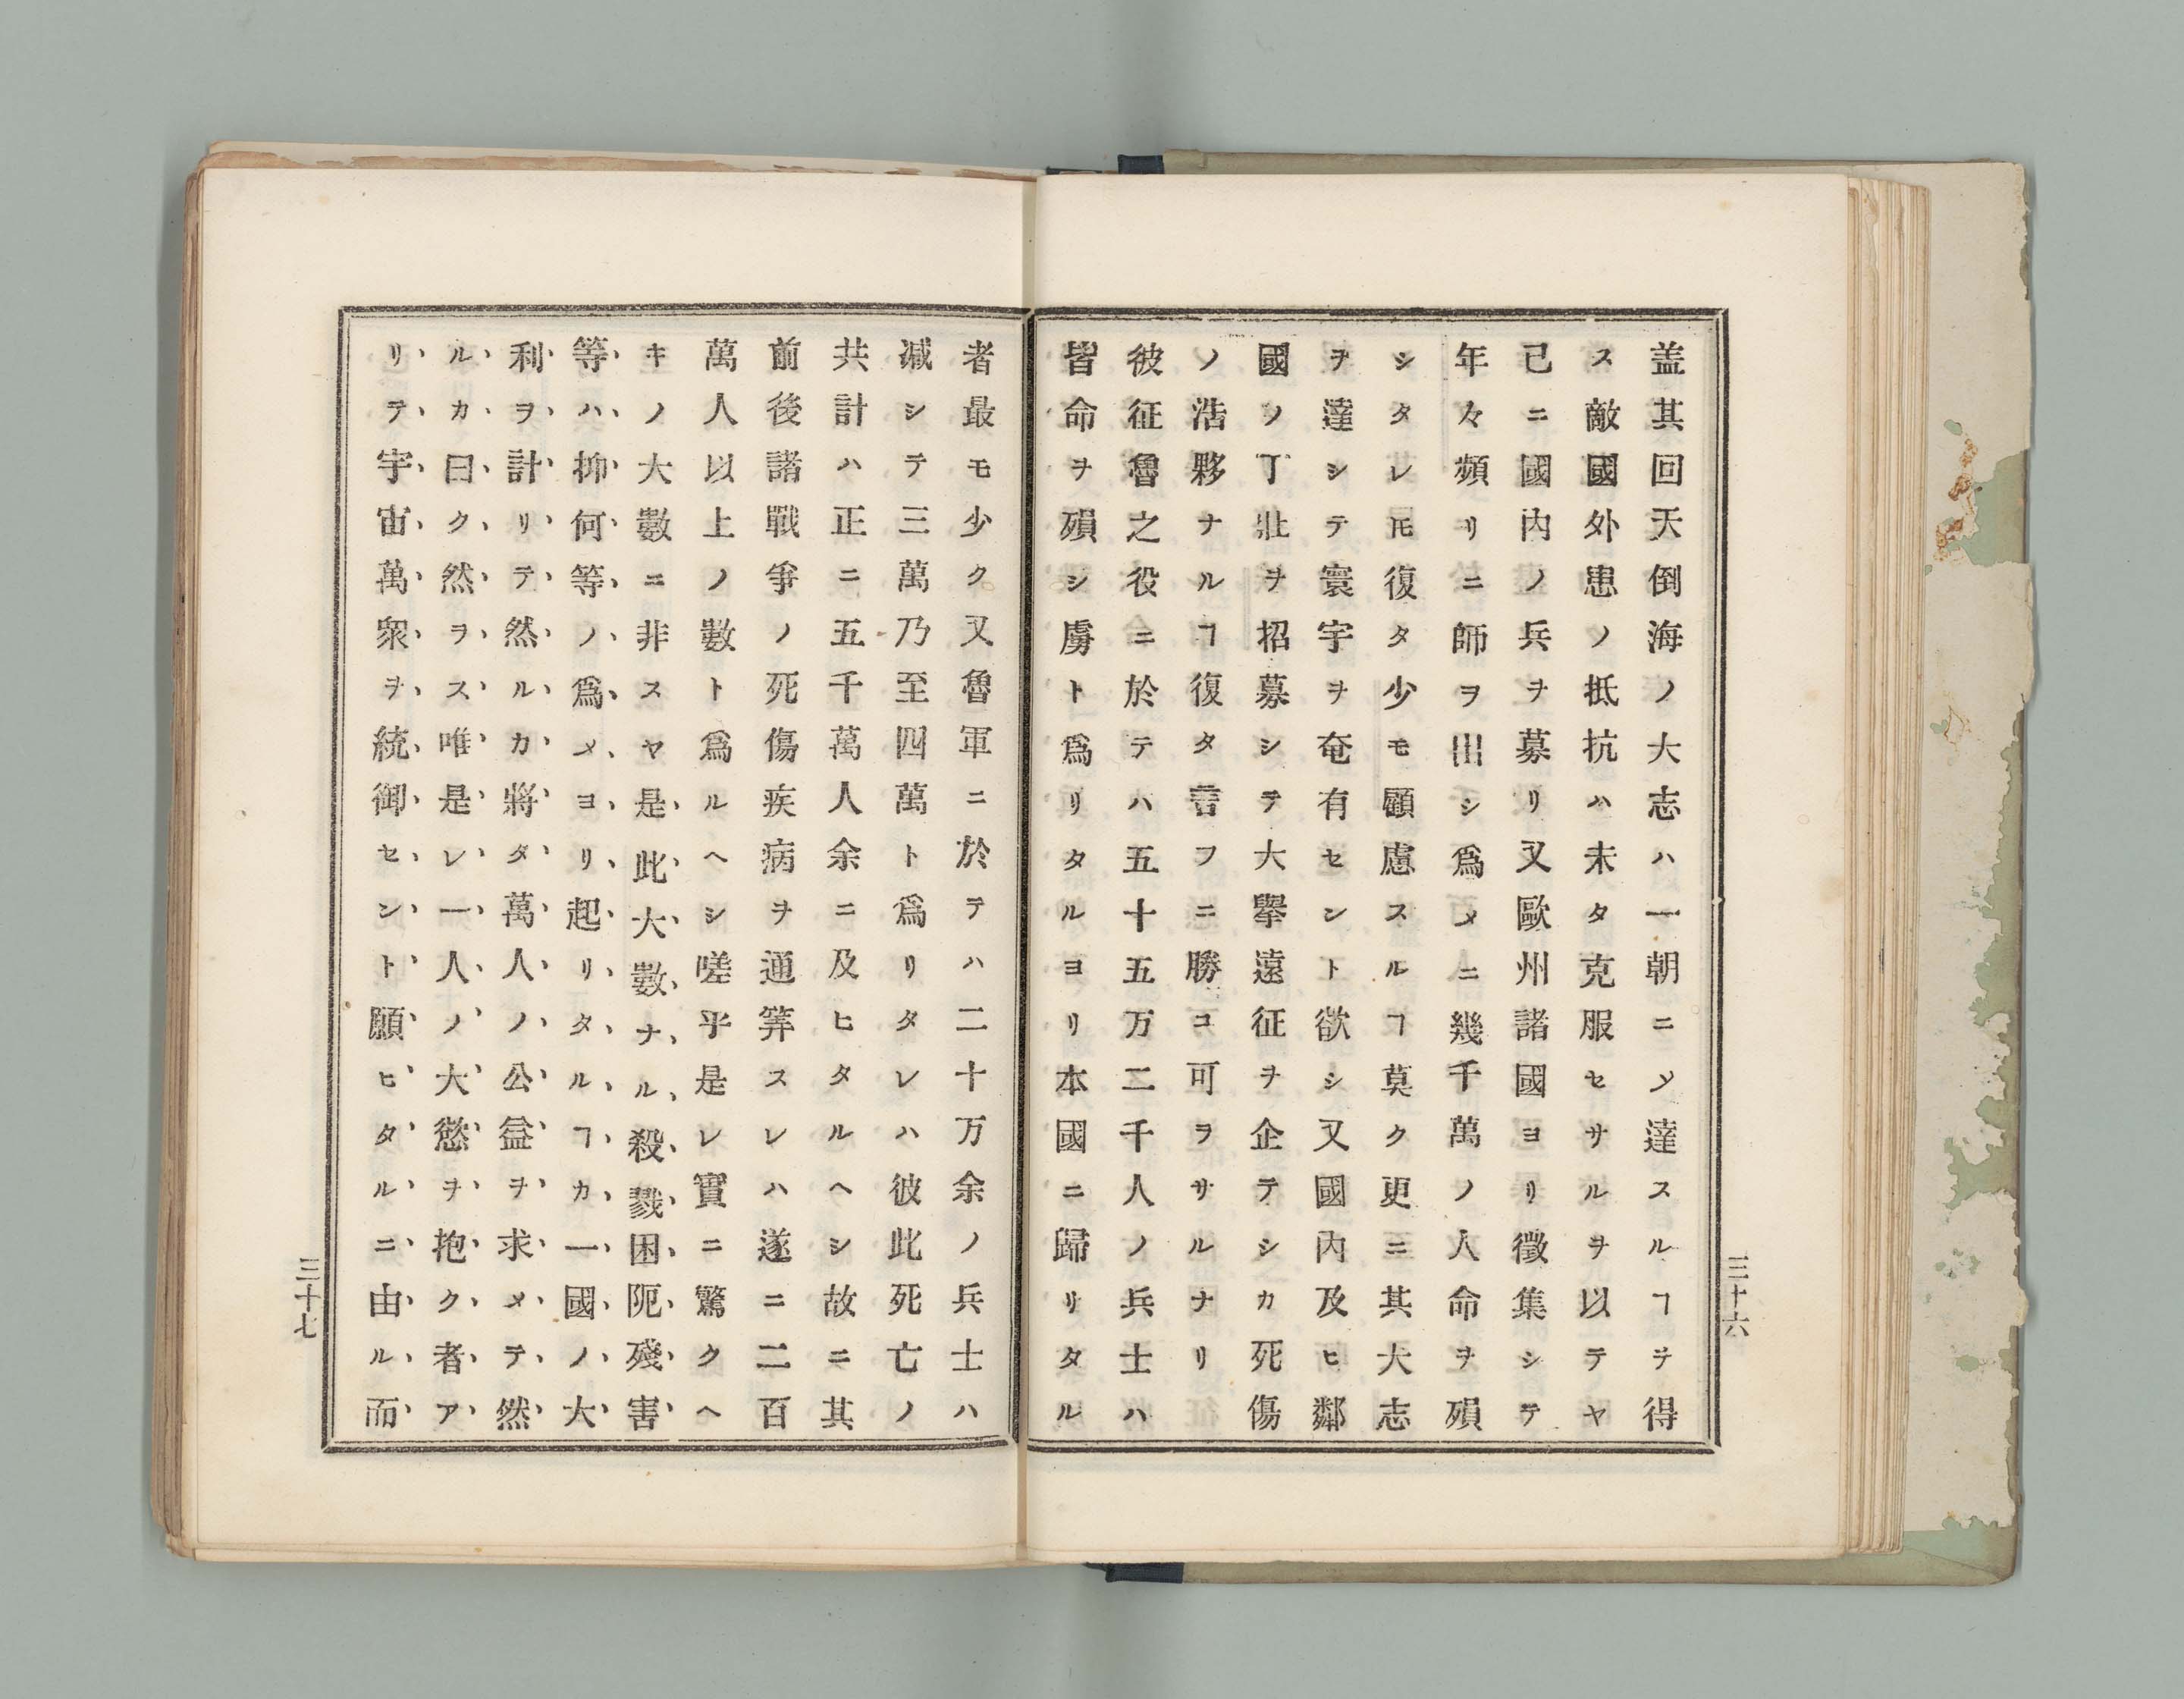 盖其回天倒海ノ大志ハ一朝ニメ達スルヿヲ得
ス敵國外患ノ抵抗ハ未タ克服セサルヲ以テヤ
己ニ國内ノ兵ヲ募リ又歐州諸國ヨリ徵集シテ
年々頻リニ師ヲ出シ爲メニ幾千萬ノ人命ヲ殞
シタレ𪜈復タ少モ顧慮スルヿ莫ク更ニ其大志
ヲ達シテ寰宇ヲ奄有セント欲シ又國内及ヒ鄰
國ノ丁壯ヲ招募シテ大擧遠征ヲ企テシカ死傷
ノ浩夥ナルヿ復タ言フニ勝コ可ヲサルナリ
彼征魯之役ニ於テハ五十五万二千人ノ兵士ハ
皆命ヲ殞シ虜ト爲リタルヨリ本國ニ歸リタル
三十六
者最モ少ク又魯軍ニ於テハ二十万余ノ兵士ハ
减シテ三萬乃至四萬ト爲リタレハ彼此死亡ノ
共計ハ正ニ五千萬人余ニ及ヒタルヘシ故ニ其
前後諸戰爭ノ死傷疾病ヲ通筭スレハ遂ニ二百
萬人以上ノ數ト爲ルヘシ嗟乎是レ實ニ驚クヘ
キノ大數ニ非スヤ是此大數ナル殺戮困阨殘害
等ハ抑何等ノ爲メヨリ起リタルヿカ一國ノ大
利ヲ計リテ然ルカ將タ萬人ノ公益ヲ求メテ然
ルカ曰ク然ラス唯是レ一人ノ大慾ヲ抱ク者ア
リテ宇宙萬衆ヲ統御セント願ヒタルニ由ル而
三十七